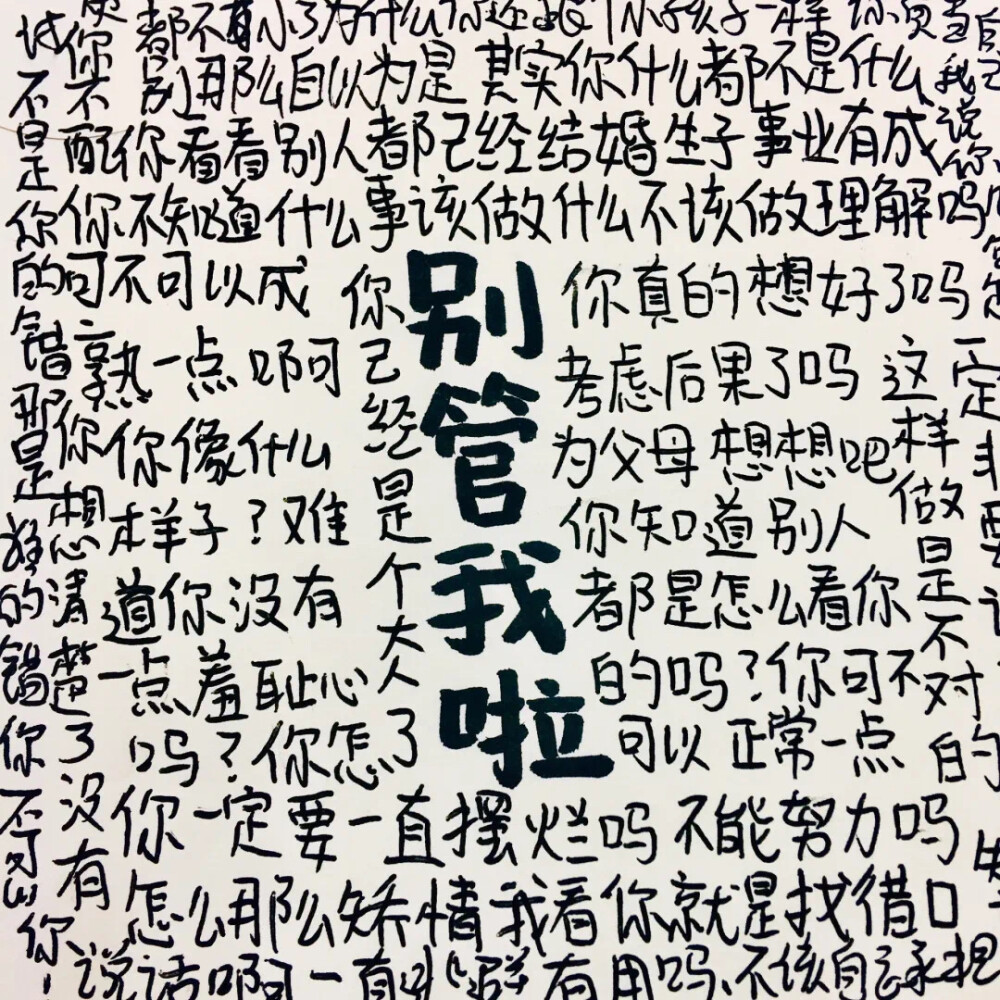 为什么你还跟个小孩子一样
别那么自以为是 其实你什么都不是什么
配你看看别人都已经结婚生子事业有成
你不知道什么事该做什么不该做理解吗
不是你的错那是谁的错你不可以
可不可以成
熟一点啊
你像什么
样子?难
道你没有
一点羞耻心
吗?你怎
你想清楚了没有
你已经是个大人了
别管我啦
你真的想好了吗
考虑后果了吗
为父母想想吧
你知道别人
都是怎么看你
的吗?你可不
可以正常一点
这样做是不对的
一定非要
你一定要一直摆烂吗 不能努力吗
怎么那么矫情我看你就是找借口
说话啊一直 有用吗 不该自